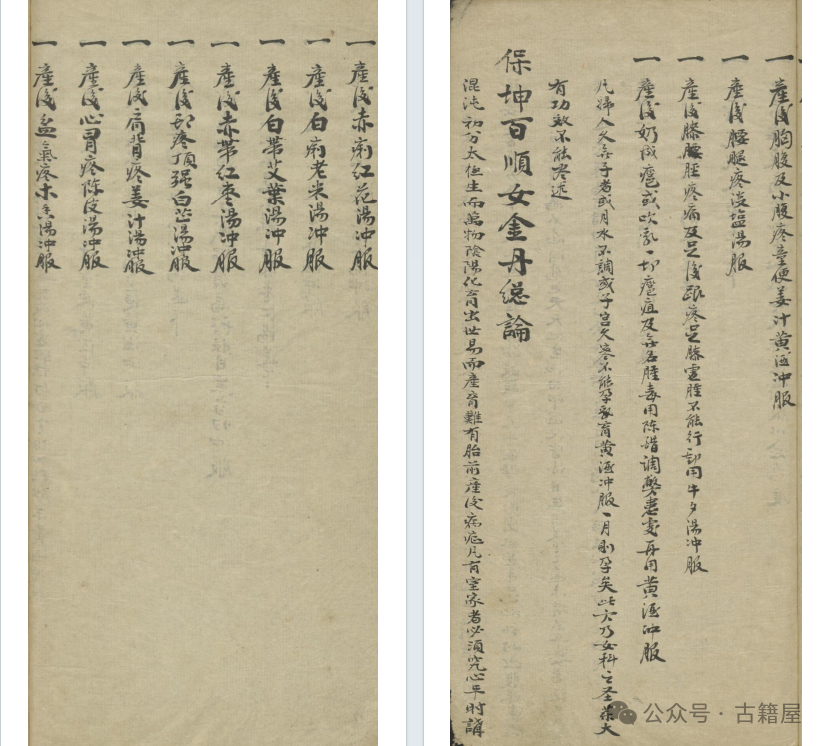 一產後赤痢紅花湯沖服
一產後白痢老米湯沖服
一產後白帶艾葉湯沖服
一產後赤帶紅棗湯沖服
一產後疼頂强白芷湯沖服
一產後肩背疼姜汁湯沖服
一產後心胃疼陈皮湯沖服
一產後氣疼木香湯沖服
一產後胸腹及小腹疼童便姜汁黄酒沖服
一產後腰腿疼淡塩湯服
一產後膝腰脛疼痛及足後跟疼足膝虚腫不能行動用牛夕湯沖服
一產後奶成瘡或吹乳一切瘡疽及無名腫毒用陈醋調敷患處再用黄酒沖服
凡婦人久無子者或月水不調或子宫久寒不能孕育黄酒沖服一月則孕矣此方乃女科之圣薬大
有功效不能尽述
保坤百順女金丹総論
混沌初分太極生而萬物陰陽化育出世易而產育難有胎前產後病症凡有室家者必須究心平时講
公众号·古籍屋